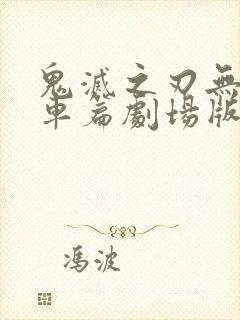 鬼滅之刃無
車篇劇場版
馮波